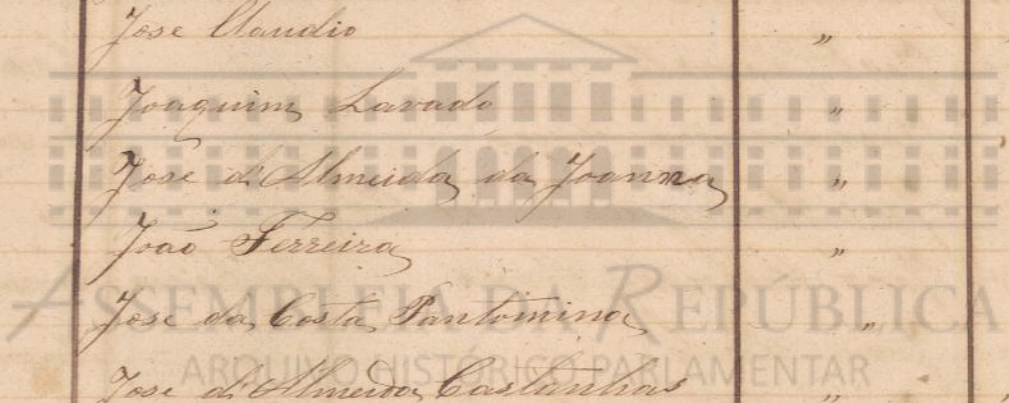 Jose Claudio "
Joaquim Lavado "
Jose d'Almeida da Joanna "
João Ferreira "
Jose da Costa Pantomina "
Jose d'Almeida Castanhas "
ASSEMBLEIA DA REPÚBLICA
ARQUIVO HISTÓRICO PARLAMENTAR